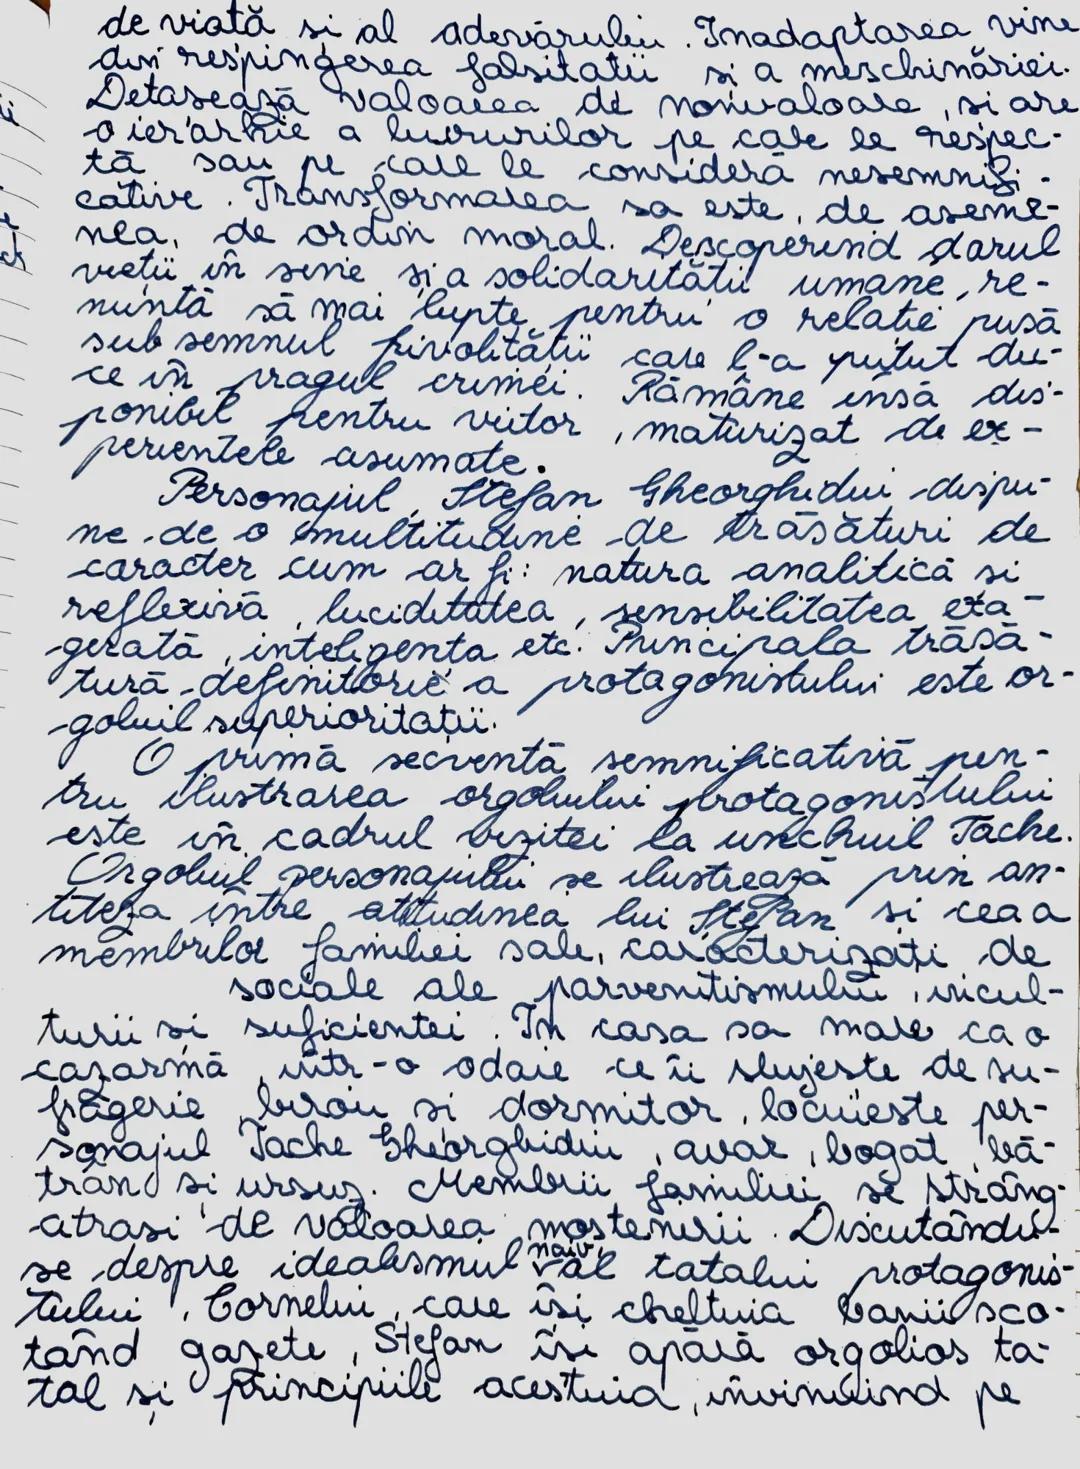 de viată si al adevărului. Inadaptarea vine
din respingerea falsitatii si a meschinăriei.
Detasează valoarea de nonvaloare, si are
o ierarhie a lucrurilor pe care le respec-
tă sau pe care le consideră nesemnifi-
cative. Transformarea sa este, de aseme-
nea, de ordin moral. Descoperind darul
vietii in sine si a solidarității umane, re-
nuntă să mai lupte pentru o relatie pusă
sub semnul frivolitătii care l-a putut du-
ce in pragul crimei. Rămâne insă dis-
ponibil pentru viitor, maturizat de ex-
perientele asumate.
Personajul Stefan Gheorghidiu dispu-
ne de o multitudine de trăsături de
caracter cum ar fi: natura analitică si
reflexivă, luciditatea, sensibilitatea exa-
gerată, inteligenta etc. Principala trăsă-
tură definitorie a protagonistului este or-
goliul superioritatii.
O primă secventă semnificativă pen-
tru ilustrarea orgoliului protagonistului
este in cadrul vizitei la unchiul Tache.
Orgoliul personajului se ilustrează prin an-
titeza intre atitudinea lui Stefan si cea a
membrilor familiei sale, caracterizați de
sociale ale parvenitismului, incul-
turii si suficientei. In casa sa mare ca o
cazarmă, intr-o odaie ce ii slujeste de su-
fragerie birou si dormitor, locuieste per-
sonajul Tache Gheorghidiu, avar, bogat, bă-
trân si ursuz. Membrii familiei se strâng
atrasi de valoarea mostenirii. Discutându-
se despre idealismul naiv al tatalui protagonis-
tului, Corneliu, care isi cheltuia banii sco-
tând gazete, Stefan isi apără orgolios ta-
tal și principiile acestuia, invinuind pe